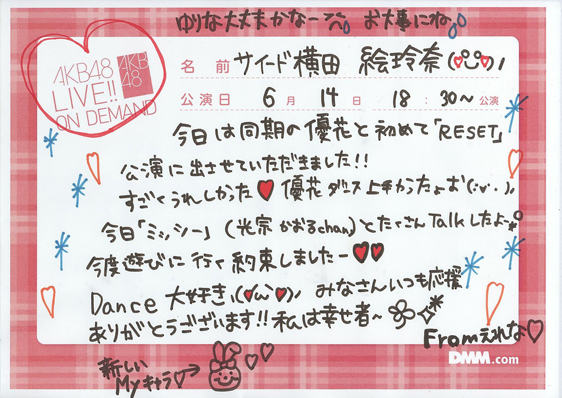 ゆりな大丈夫かなー?? お大事にね
AKB48
LIVE!!
ON DEMAND
AKB
48
名前 サイード横田 絵玲奈
公演日 6月 14日 18:30〜公演
今日は同期の優花と初めて「RESET」
公演に出させていただきました!!
すごくうれしかった♥優花ダンス上手かったよぉ(;∨;)
今日「ミッツー」(光宗かおるchan)とたくさんTalkしたよ〜
今度遊びに行く約束しましたー♥♥
Dance 大好き(♥ω♥) みなさんいつも応援
ありがとうございます!!私は幸せ者〜
Fromえれな♡
新しい
Myキャラ♡→
DMM.com